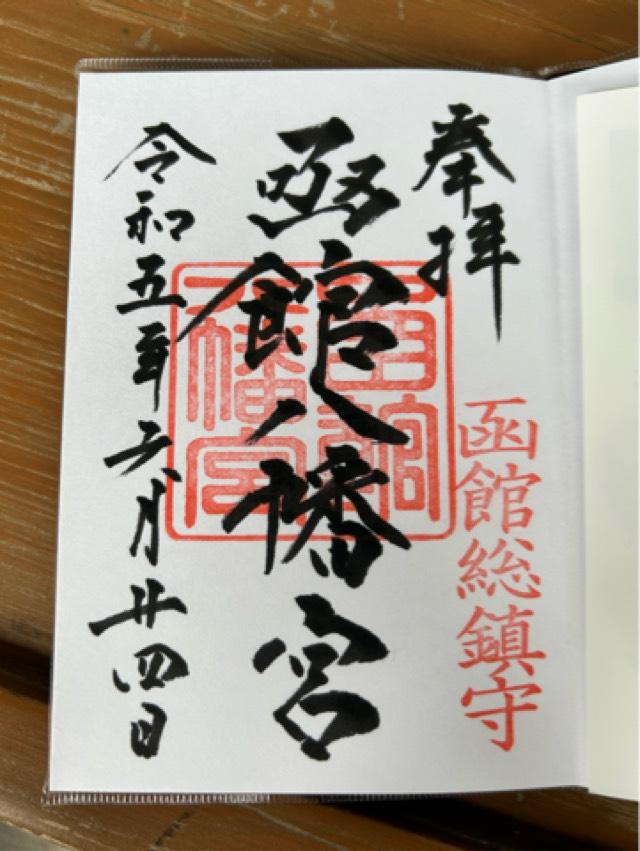 奉拝
函館総鎮守
函館八幡宮
函館八幡宮
令和五年六月廿四日